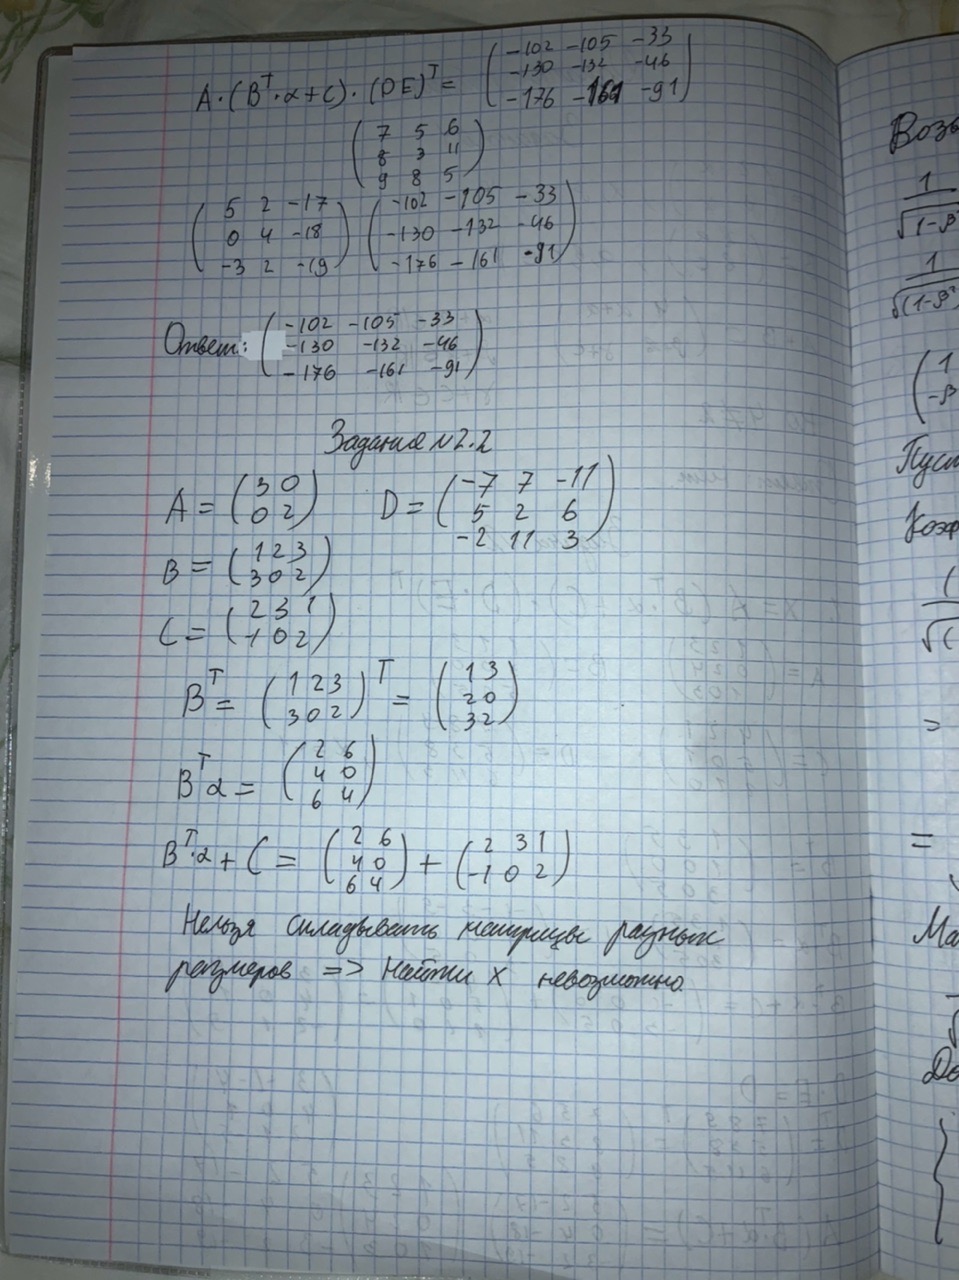 A·(Bᵀ·α+C)·(DE)ᵀ = (-102 -105 -33
-130 -132 -46
-176 -161 -91)
(7 5 6
8 3 11
9 8 5)
(5 2 -17
0 4 -18
-3 2 -19) (-102 -105 -33
-130 -132 -46
-176 -161 -91)
Ответ: (-102 -105 -33
-130 -132 -46
-176 -161 -91)
Задание №2.2
A = (3 0
0 2) D = (-7 7 -11
5 2 6
-2 11 3)
B = (1 2 3
3 0 2)
C = (2 3 1
-1 0 2)
Bᵀ = (1 2 3
3 0 2)ᵀ = (1 3
2 0
3 2)
Bᵀα = (2 6
4 0
6 4)
Bᵀ·α + C = (2 6
4 0
6 4) + (2 3 1
-1 0 2)
Нельзя складывать матрицы разных
размеров => найти X невозможно
Возв
1
√1-β²
1
√(1-β²
(1
-β
Пуст
Коэф
(1
√(
=
=
Ма
До